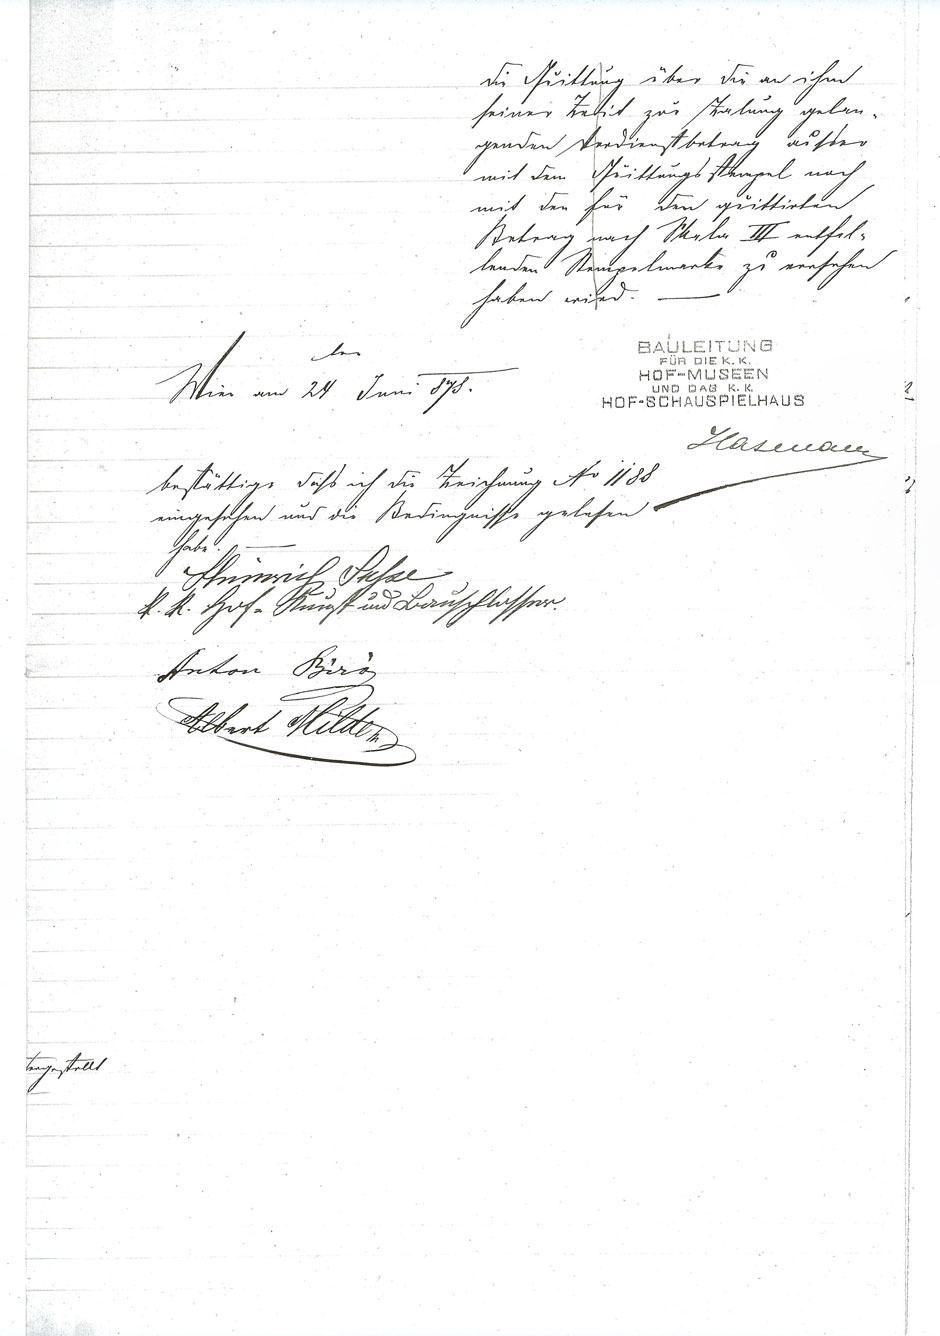 die Quittung über die an ihm
seiner Zeit zur Zalung gelan-
genden Verdienstbetrag außer
mit dem Quittungsstempel noch
mit der für den quittirten
Betrag nach Skala III entfal-
lenden Stempelmarke zu versehen
haben wird. —
Wien am 24 ten Juni 878.
BAULEITUNG
FÜR DIE K. K.
HOF-MUSEEN
UND DAS K. K.
HOF-SCHAUSPIELHAUS
Hasenauer
bestättige daß ich die Zeichnung No 1188
eingesehen und die Bedingnisse gelesen
habe. —
Heinrich
k. k. Hof- Kunst und Bauschlosser.
Anton Biró
Albert Milde